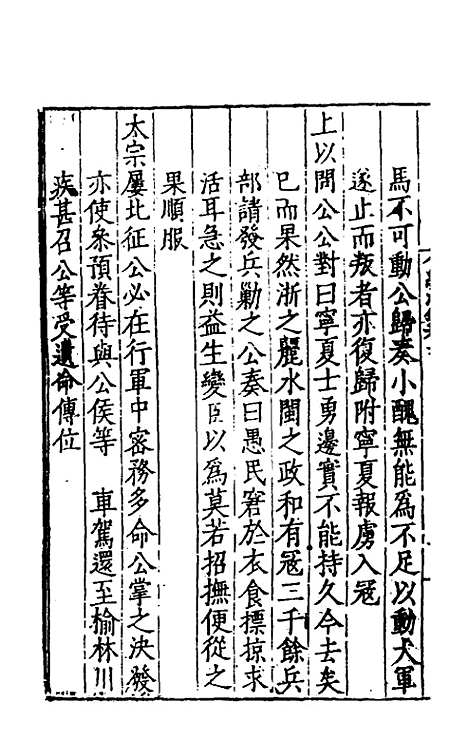 馬不可動公歸奏小醜無能爲不足以動大軍
遂止而叛者亦復歸附寧夏報虜入寇
上以問公公對曰寧夏士勇邊實不能持久今去矣
已而果然浙之麗水閩之政和有寇三千餘兵
部請發兵勦之公奏曰愚民窘於衣食摽掠求
活耳急之則益生變臣以爲莫若招撫便從之
果順服
太宗屢北征公必在行軍中密務多命公掌之決發
亦使參預眷待與公侯等　車駕還至榆林川
疾甚召公等受遺命傳位